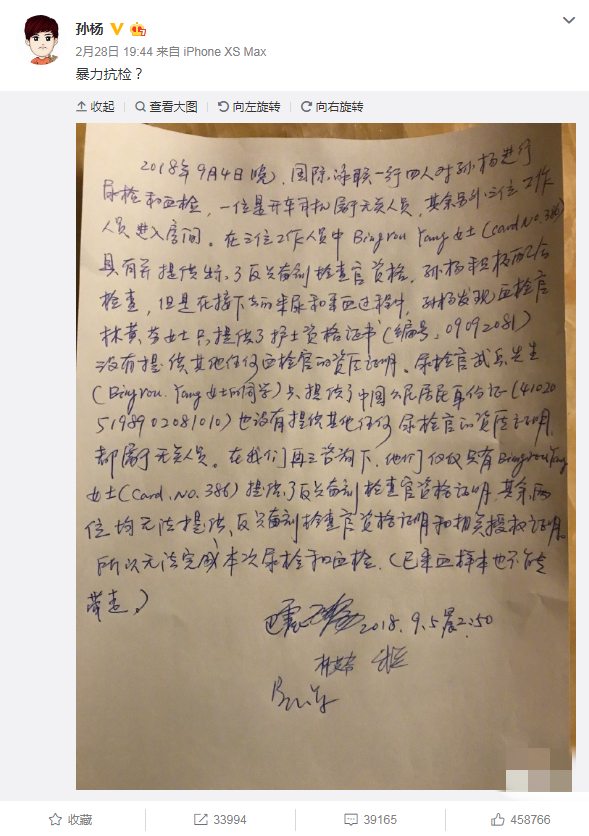 孙杨
2月28日 19:44 来自 iPhone XS Max
暴力抗检？
收起 查看大图 向左旋转 向右旋转
2018年9月4日晚，国际泳联一行四人对孙杨进行
尿检和血检，一位是开车司机属于无关人员，其余另外三位工作
人员进入房间。在三位工作人员中 Bingrou Yang女士(card No. 386)
具有并提供出示了反兴奋剂检查官资格，孙杨积极配合
检查，但是在接下去的采尿和采血过程中，孙杨发现血检官
林黄 女士只提供了护士资格证书(编号：09092081)
没有提供其他任何血检官的资质证明。尿检官 先生
(Bingrou. Yang女士的同学)只提供了中国公民居民身份证(
)也没有提供其他任何尿检官的资质证明，
都属于无关人员。在我们再三咨询下，他们仅仅只有Bingrou Yang
女士(Card. No. 386)提供了反兴奋剂检查官资格证明，其余两
位均无法提供反兴奋剂检查官资格证明和相关授权证明。
所以无法完成本次尿检和血检. (已采血样本也不能
带走。)
2018. 9. 5晨2:50
收藏 33994 39165 458766